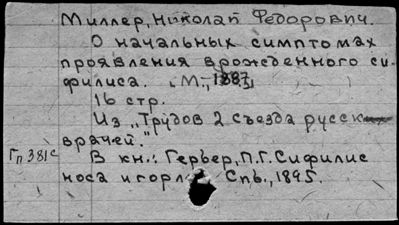 Миллер, Николай Федорович.
О начальных симптомах
проявления врожденного си-
филиса. М.,
16 стр.
Из "Трудов 2 съезда русск
врачей."
Гп 381с В кн.: Гербер, П.Г. Сифилис
носа и горл Спб., 1895.